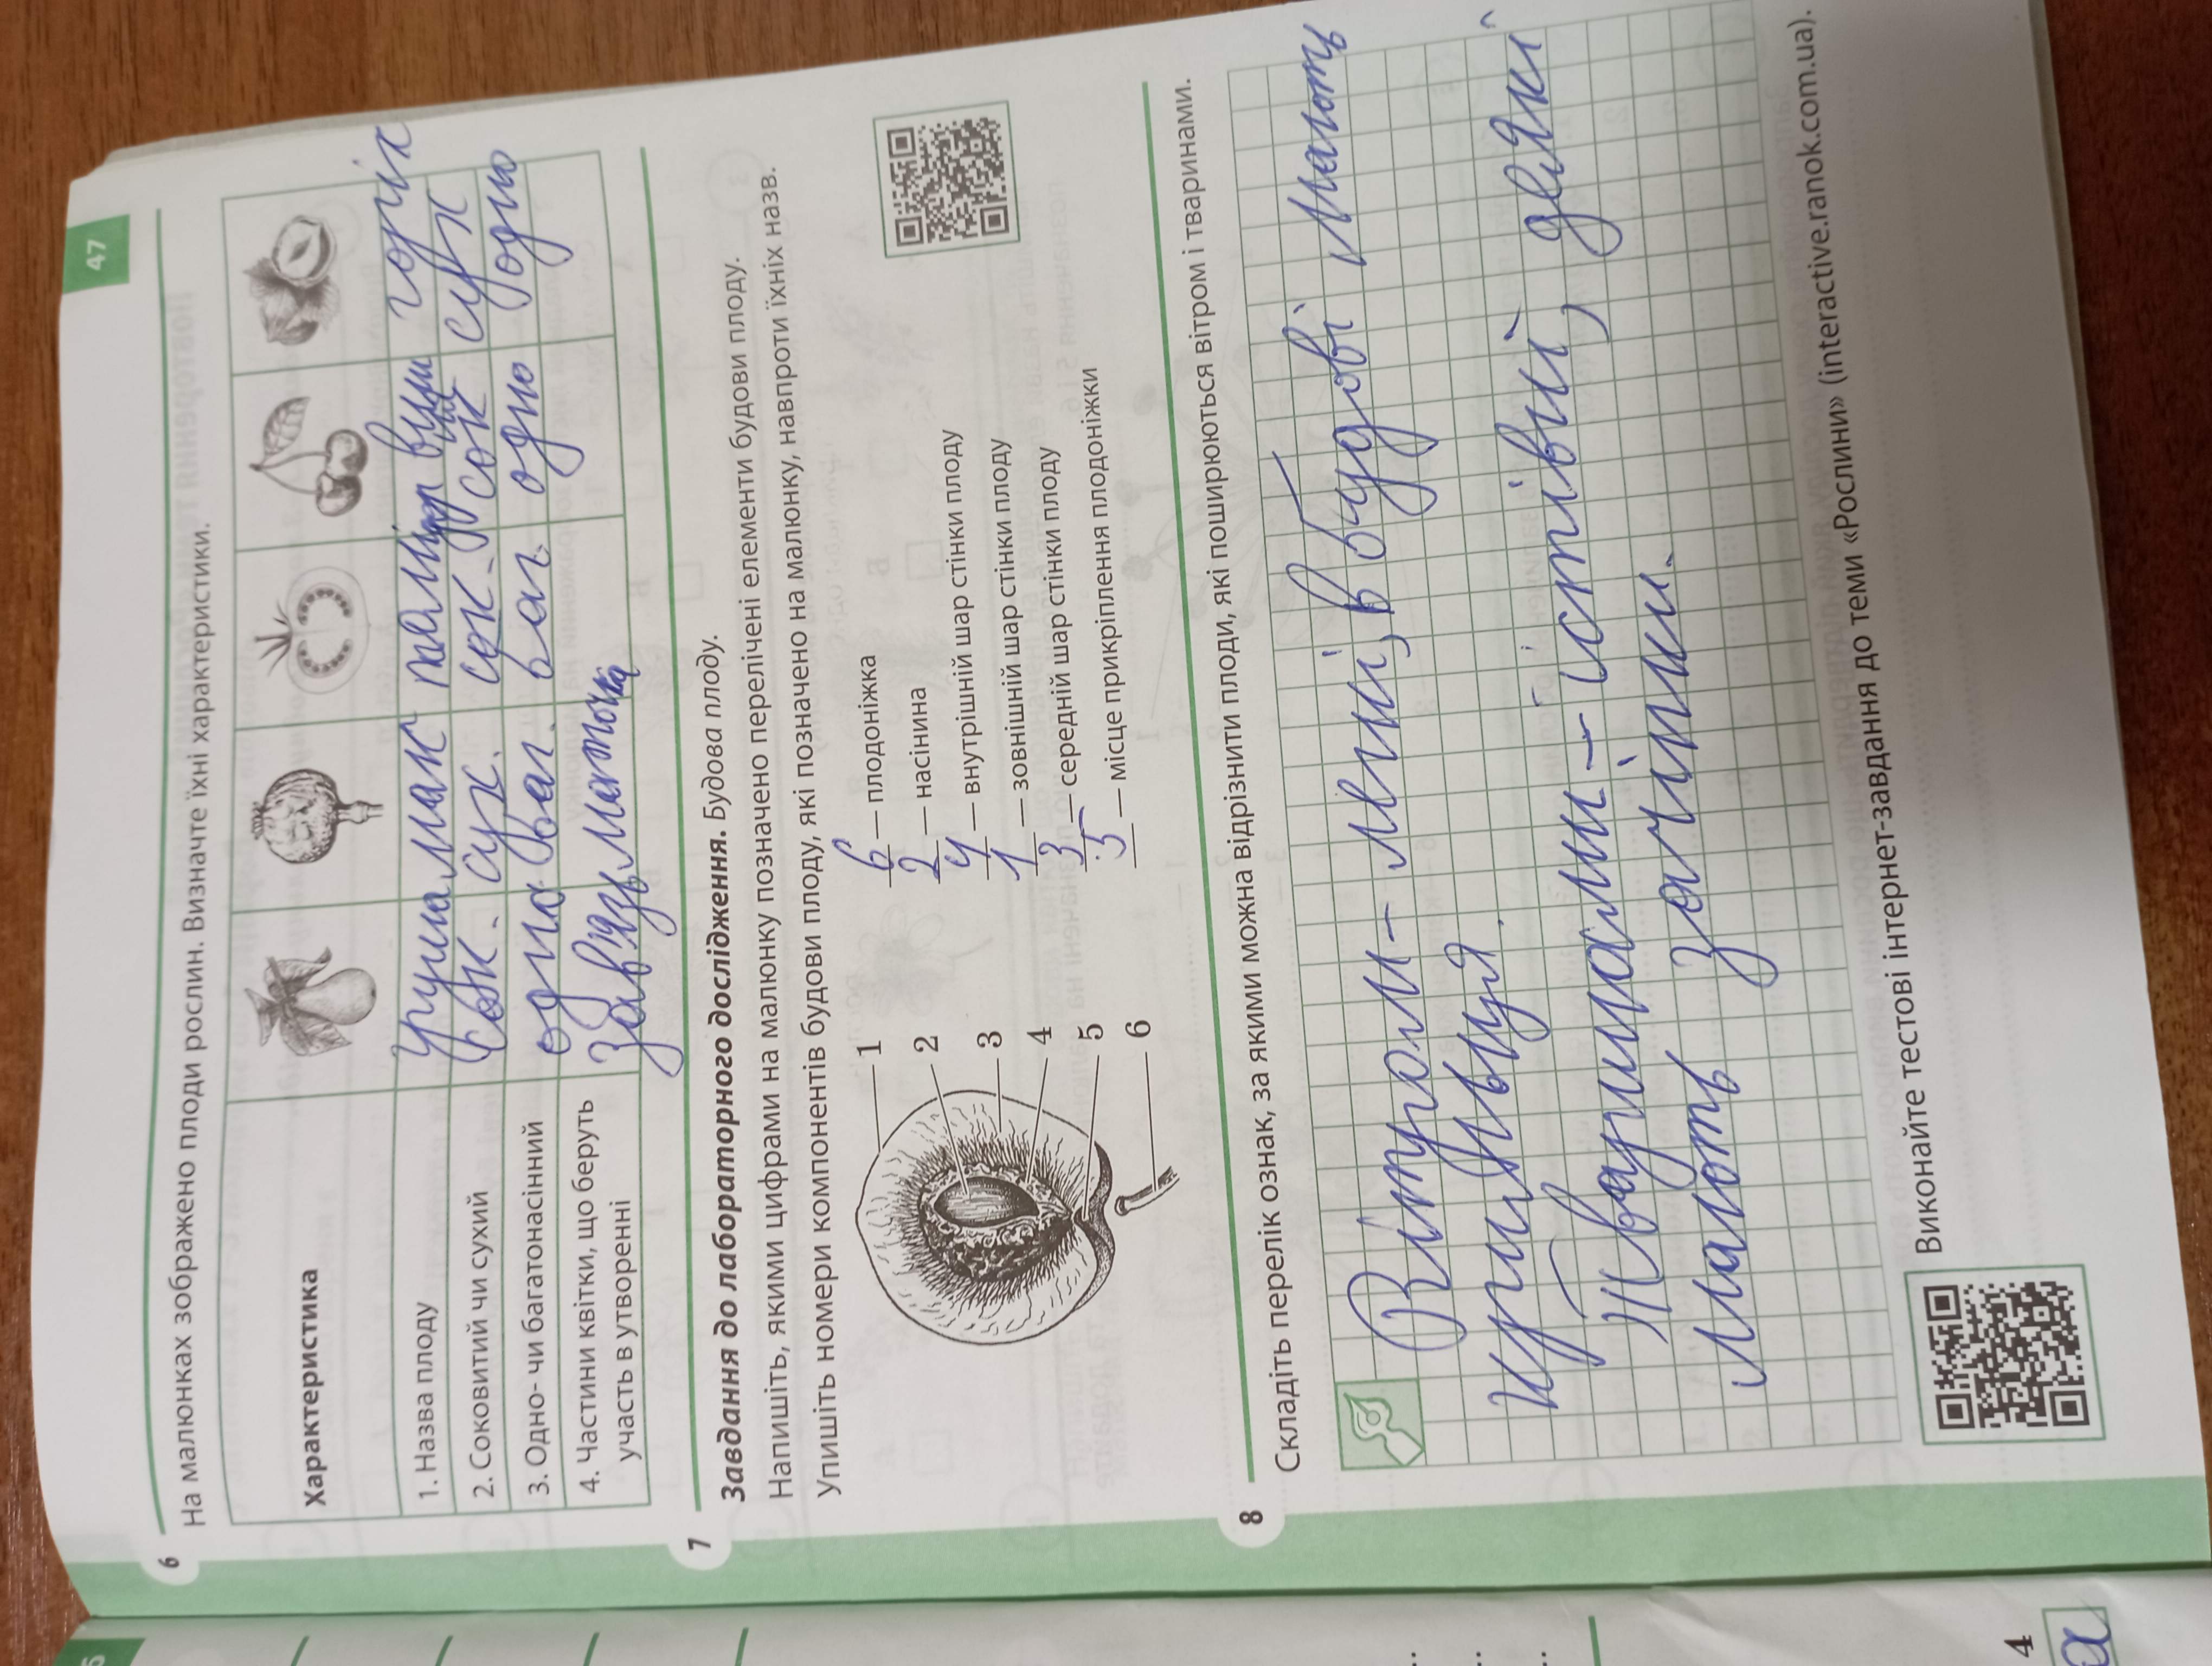 47
6
На малюнках зображено плоди рослин. Визначте їхні характеристики.
Характеристика
1. Назва плоду груша мак томат вишн горіх
2. Соковитий чи сухий сок. сух. сок. сок сух
3. Одно- чи багатонасінний одно. баг. баг. одно одно
4. Частини квітки, що беруть
участь в утворенні зав'язь маточки
7
Завдання до лабораторного дослідження. Будова плоду.
Напишіть, якими цифрами на малюнку позначено перелічені елементи будови плоду.
Упишіть номери компонентів будови плоду, які позначено на малюнку, навпроти їхніх назв.
1
2
3
4
5
6
6 — плодоніжка
2 — насінина
4 — внутрішній шар стінки плоду
1 — зовнішній шар стінки плоду
3 — середній шар стінки плоду
5 — місце прикріплення плодоніжки
8
Складіть перелік ознак, за якими можна відрізнити плоди, які поширюються вітром і тваринами.
Вітром - легкі, в будові мають
крильця.
Тваринами - їстівні, деякі
мають зачіпки.
Виконайте тестові інтернет-завдання до теми «Рослини» (interactive.ranok.com.ua).
4
а